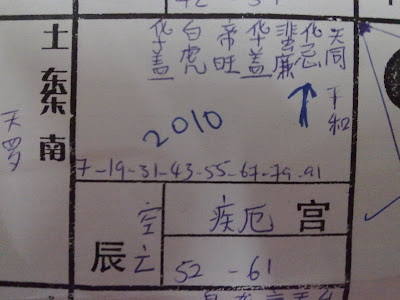 天同 平和
化忌
蜚廉
华盖
帝旺
白虎
华盖
土 东南
天罗
2010
7-19-31-43-55-67-79-91
疾厄宫
空亡
辰
52 - 61